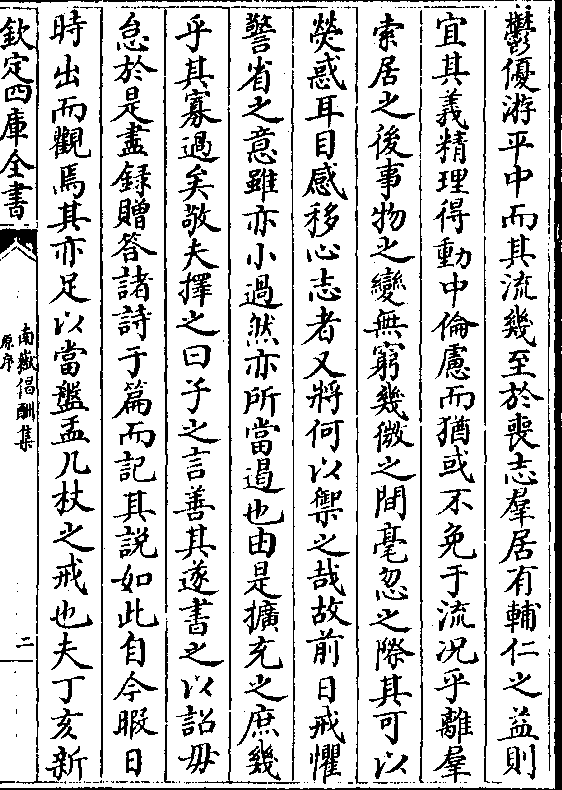 鬱優游平中而其流幾至於喪志羣居有輔仁之益則
宜其義精理得動中倫慮而猶或不免于流况乎離羣
索居之後事物之變無窮幾微之間毫忽之際其可以
熒惑耳目感移心志者又將何以禦之哉故前日戒懼
警省之意雖亦小過然亦所當過也由是擴充之庶幾
乎其寡過矣敬夫擇之曰子之言善其遂書之以詔毋
怠於是盡録贈答諸詩于篇而記其説如此自今暇日
時出而觀焉其亦足以當盤盂几杖之戒也夫丁亥新
欽定四庫全書
南嶽倡酬集
原序
二